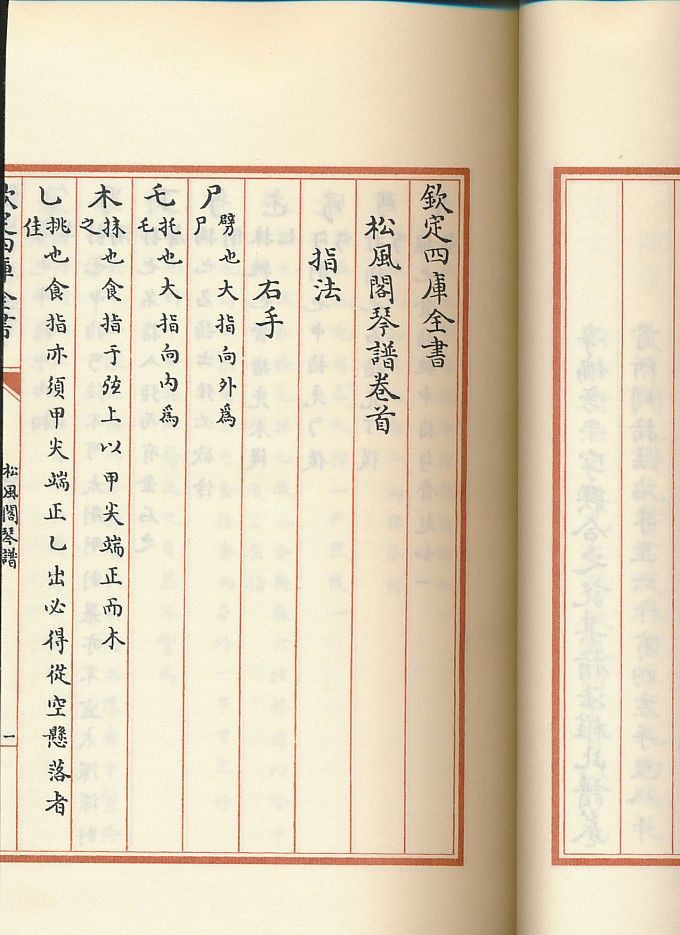 欽定四庫全書
松風閣琴譜卷首
指法
右手
尸
劈也大指向外爲
尸
乇
托也大指向內爲
乇
木
抹也食指于弦上以甲尖端正而木
之
乚
挑也食指亦須甲尖端正乚出必得從空懸落者
佳
欽定四庫全書
松風閣琴譜
一